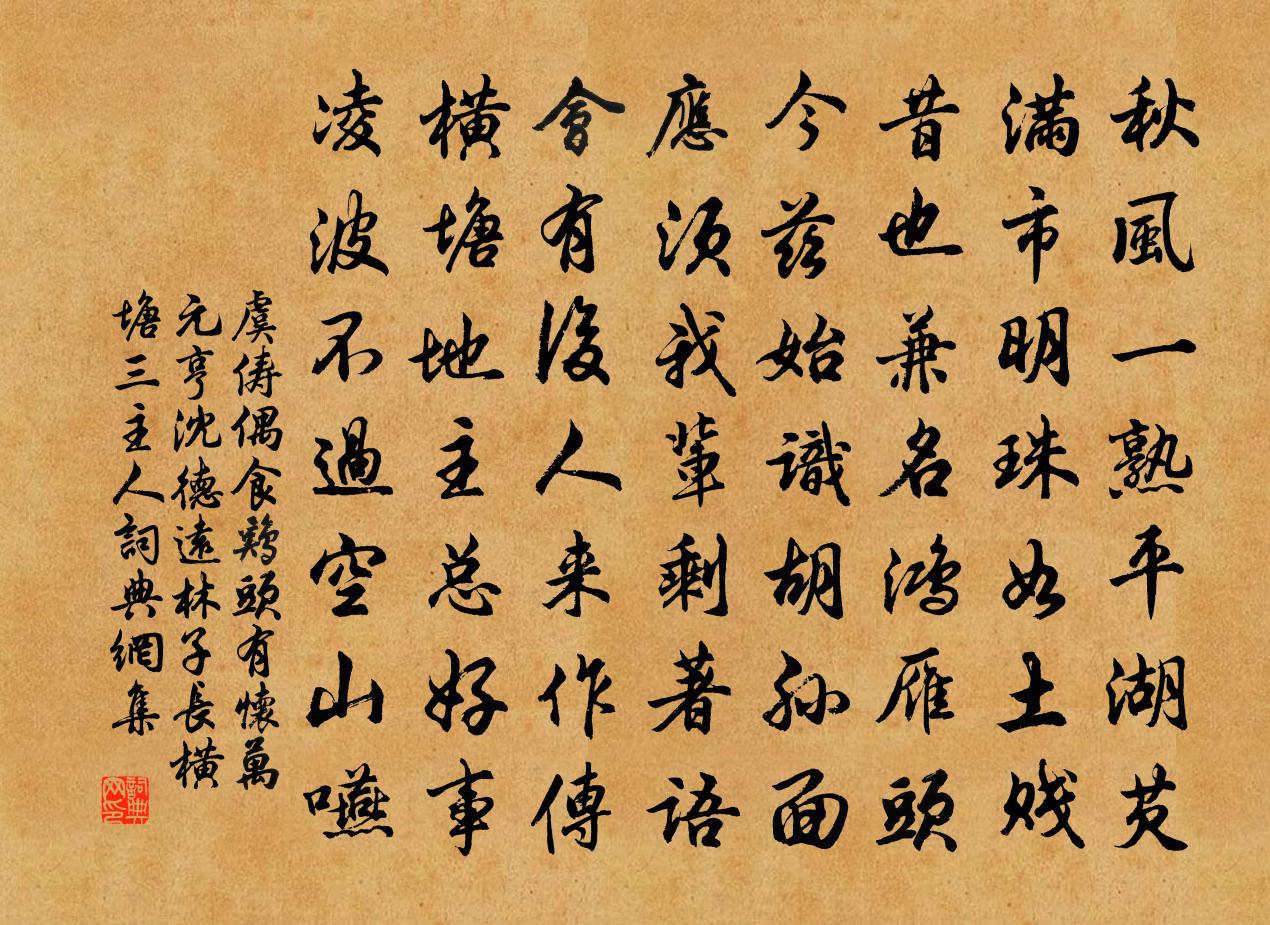 秋風一熟平湖芡
滿市明珠如土賤
昔也兼名鴻雁頭
今茲始識胡孫面
應須我輩剩著語
會有後人来作傳
橫塘地主总好事
凌波不過空山嚥
虞儔偶食鷄頭有懷萬
元亨沈德遠林子長橫
塘三主人詞典網集
詞典网印